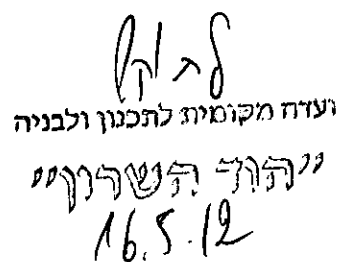 ועדה מקומית לתכנון ולבניה
"הוד השרון"
16.5.12